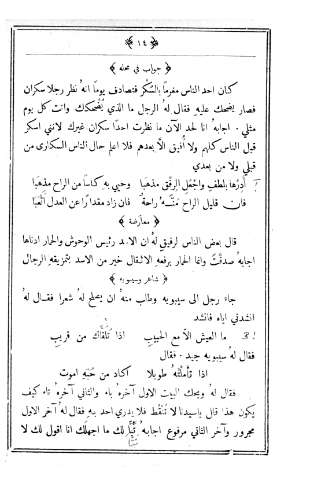 ﴿ ١٤ ﴾
﴿ جواب في محله ﴾
كان احد الناس مغرمًا بالسُّكر فتصادف يومًا انهُ نظر رجلا سكران
فصار يضحك عليهِ فقال لهُ الرجل ما الذي يُضحكك وانت كل يوم
مثلي . اجابهُ انا لحد الآن ما نظرت احدًا سكران غيرك لانني اسكر
قبل الناس كلهم ولا أُفيق الّا بعدهم فلا اعلم حال الناس السكارى من
قبلي ولا من بعدي
أدِرْها بلطفٍ واجعلِ الرفقَ مذهبا وحيي بهِ كاسًا من الراح مذهبا
فان قليل الراح راحةٌ فان زاد مقدارًا عن العدل أتعبا
﴿ معارضة ﴾
قال بعض الناس لرفيق لهُ ان الاسد رئيس الوحوش والحمار ادناها
اجابهُ صدقتَ وانما الحمار برفعهِ الاثقال خير من الاسد بتمزيقهِ الرجال
﴿ شاعر وسيبويه ﴾
جاء رجل الى سيبويه وطلب منهُ ان يصلح لهُ شعرا فقال لهُ
انشدني اياه فانشد
ما العيش الّا مع الحبيبِ اذا تلقَّاك من قريبِ
فقال لهُ سيبويه جيد . فقال
اذا تأملتُهُ طويلا اكاد من حبّهِ اموت
فقال لهُ ويحك البيت الاول آخرهُ باء والثاني آخرهُ تاء كيف
يكون هذا قال يا سيدنا لا تُنقّط فلا يدري احد بهِ فقال لهُ آخر الاول
مجرور وآخر الثاني مرفوع اجابهُ تبًّا لك ما اجهلك انا اقول لك لا